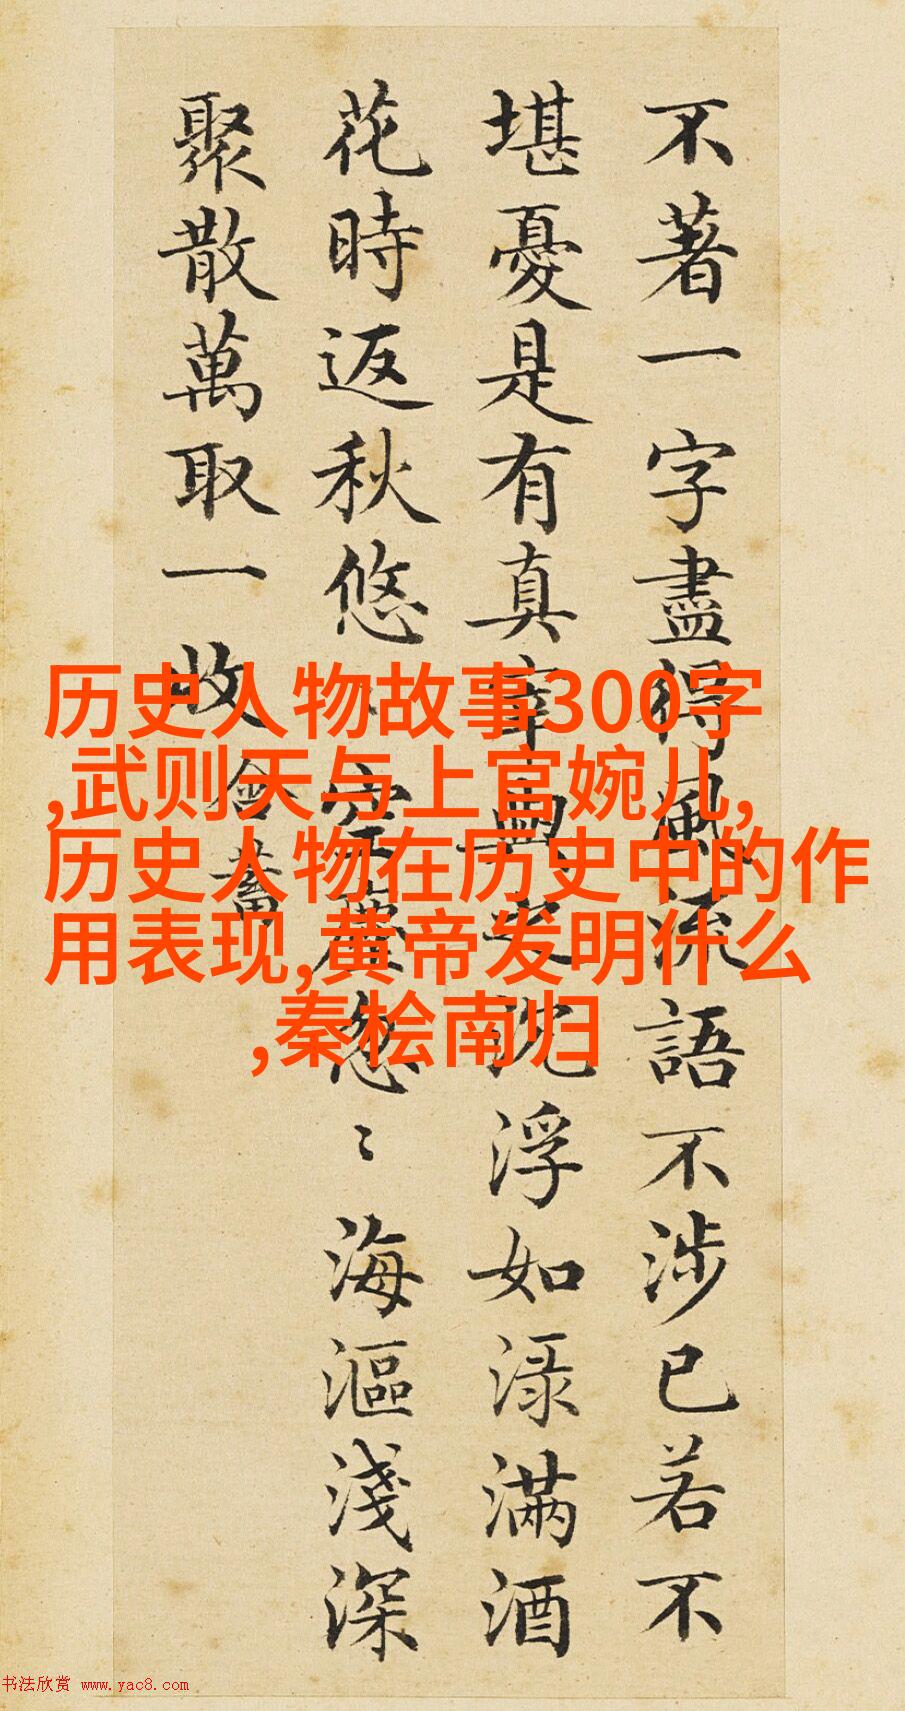 不著一字盡得風流語不涉已若不
堪憂是有真宰與之沈浮如渌滿酒
花時返秋悠〻空塵忽〻海漚淺深
聚散萬取一收 含蓄
历史人物故事300字
,武则天与上官婉儿,
历史人物在历史中的作
用表现,黄帝发明什么
,秦桧南归
书法欣赏 www.yac8.com